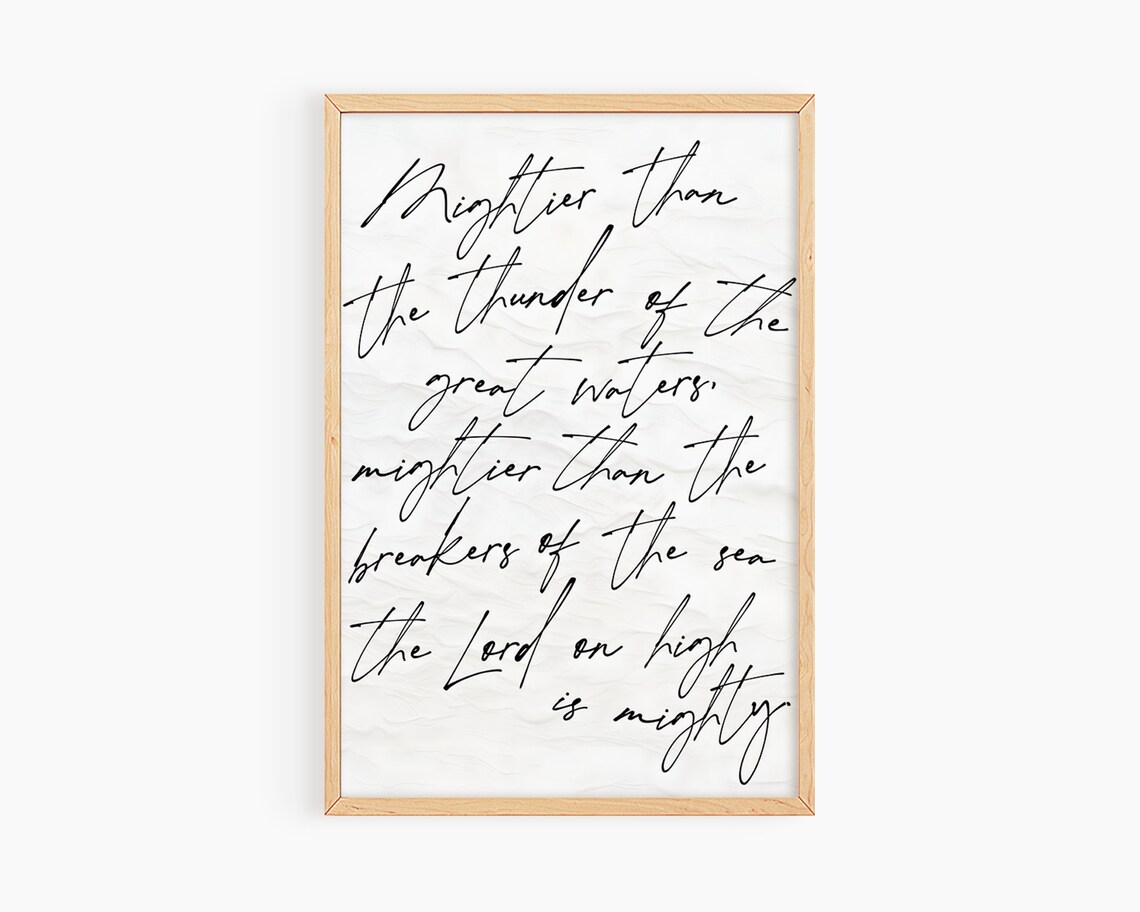 Mightier than
the thunder of the
great waters,
mightier than the
breakers of the sea
the Lord on high
is mighty.